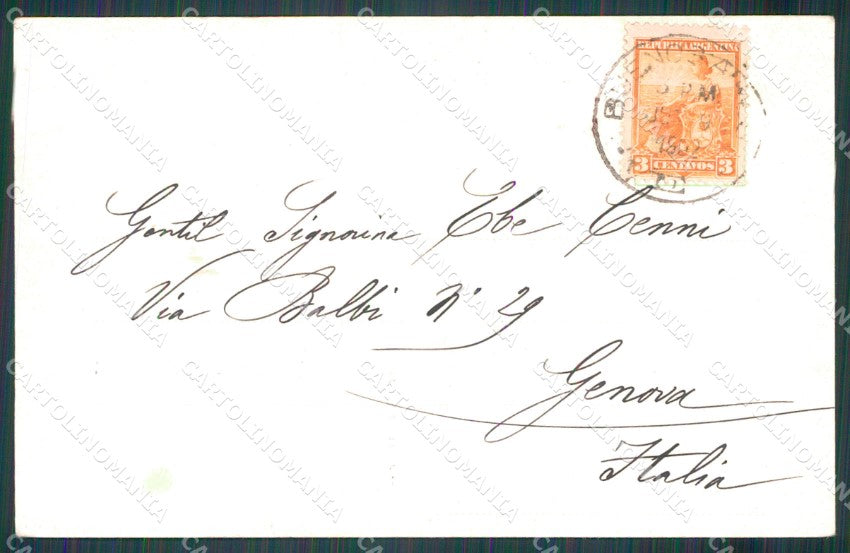 REPUBLICA ARGENTINA
3 CENTAVOS 3
Gentil Signorina Ebe Cenni
Via Balbi N° 29
Genova
Italia
CARTOLINOMANIA